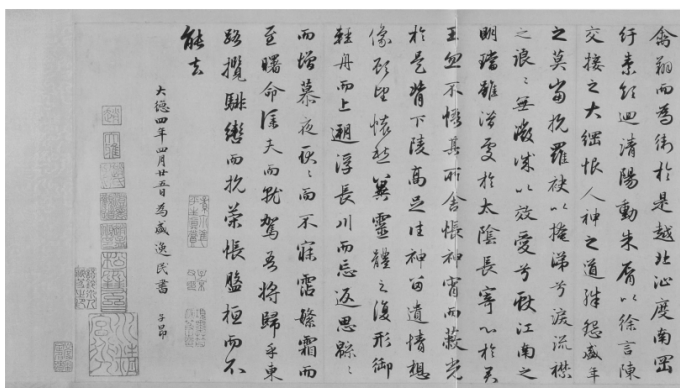 禽翔而為衛於是越北沚度南岡
紆素領迴清陽動朱脣以徐言陳
交接之大綱恨人神之道殊怨盛年
之莫當抗羅袂以掩涕兮淚流襟
之浪々無微誠以效愛兮獻江南之
明璫雖潛處於太陰長寄心於君
王忽不悟其所舍悵神宵而蔽光
於是背下陵高足往神留遺情想
像顧望懷愁冀靈體之復形御
輕舟而上遡浮長川而忘返思綿々
而增慕夜耿々而不寐霑繁霜而
至曙命僕夫而就駕吾將歸乎東
路攬騑轡而抗策悵盤桓而不
能去
大德四年四月廿五日為盛逸民書 子昂